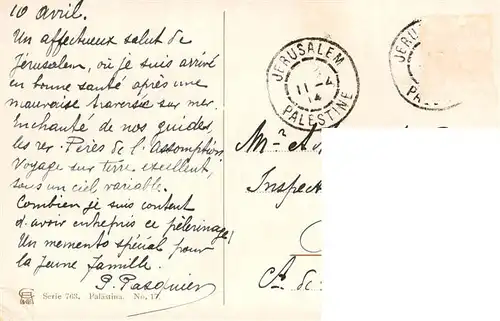 10 avril.
Un affectueux salut de
Jérusalem, où je suis arrivé
en bonne santé après une
mauvaise traversée sur mer.
Enchanté de nos guides,
les rev. Pères de l'Assomption.
Voyage sur terre excellent,
sous un ciel variable.
Combien je suis content
d'avoir entrepris ce pélerinage!
Un memento spécial pour
la jeune famille.
P. Pasquier
Serie 763. Palästina. No. 17.
JERUSALEM
11-4
14
PALESTINE
JERU
PAL
Mr A
Inspect
de